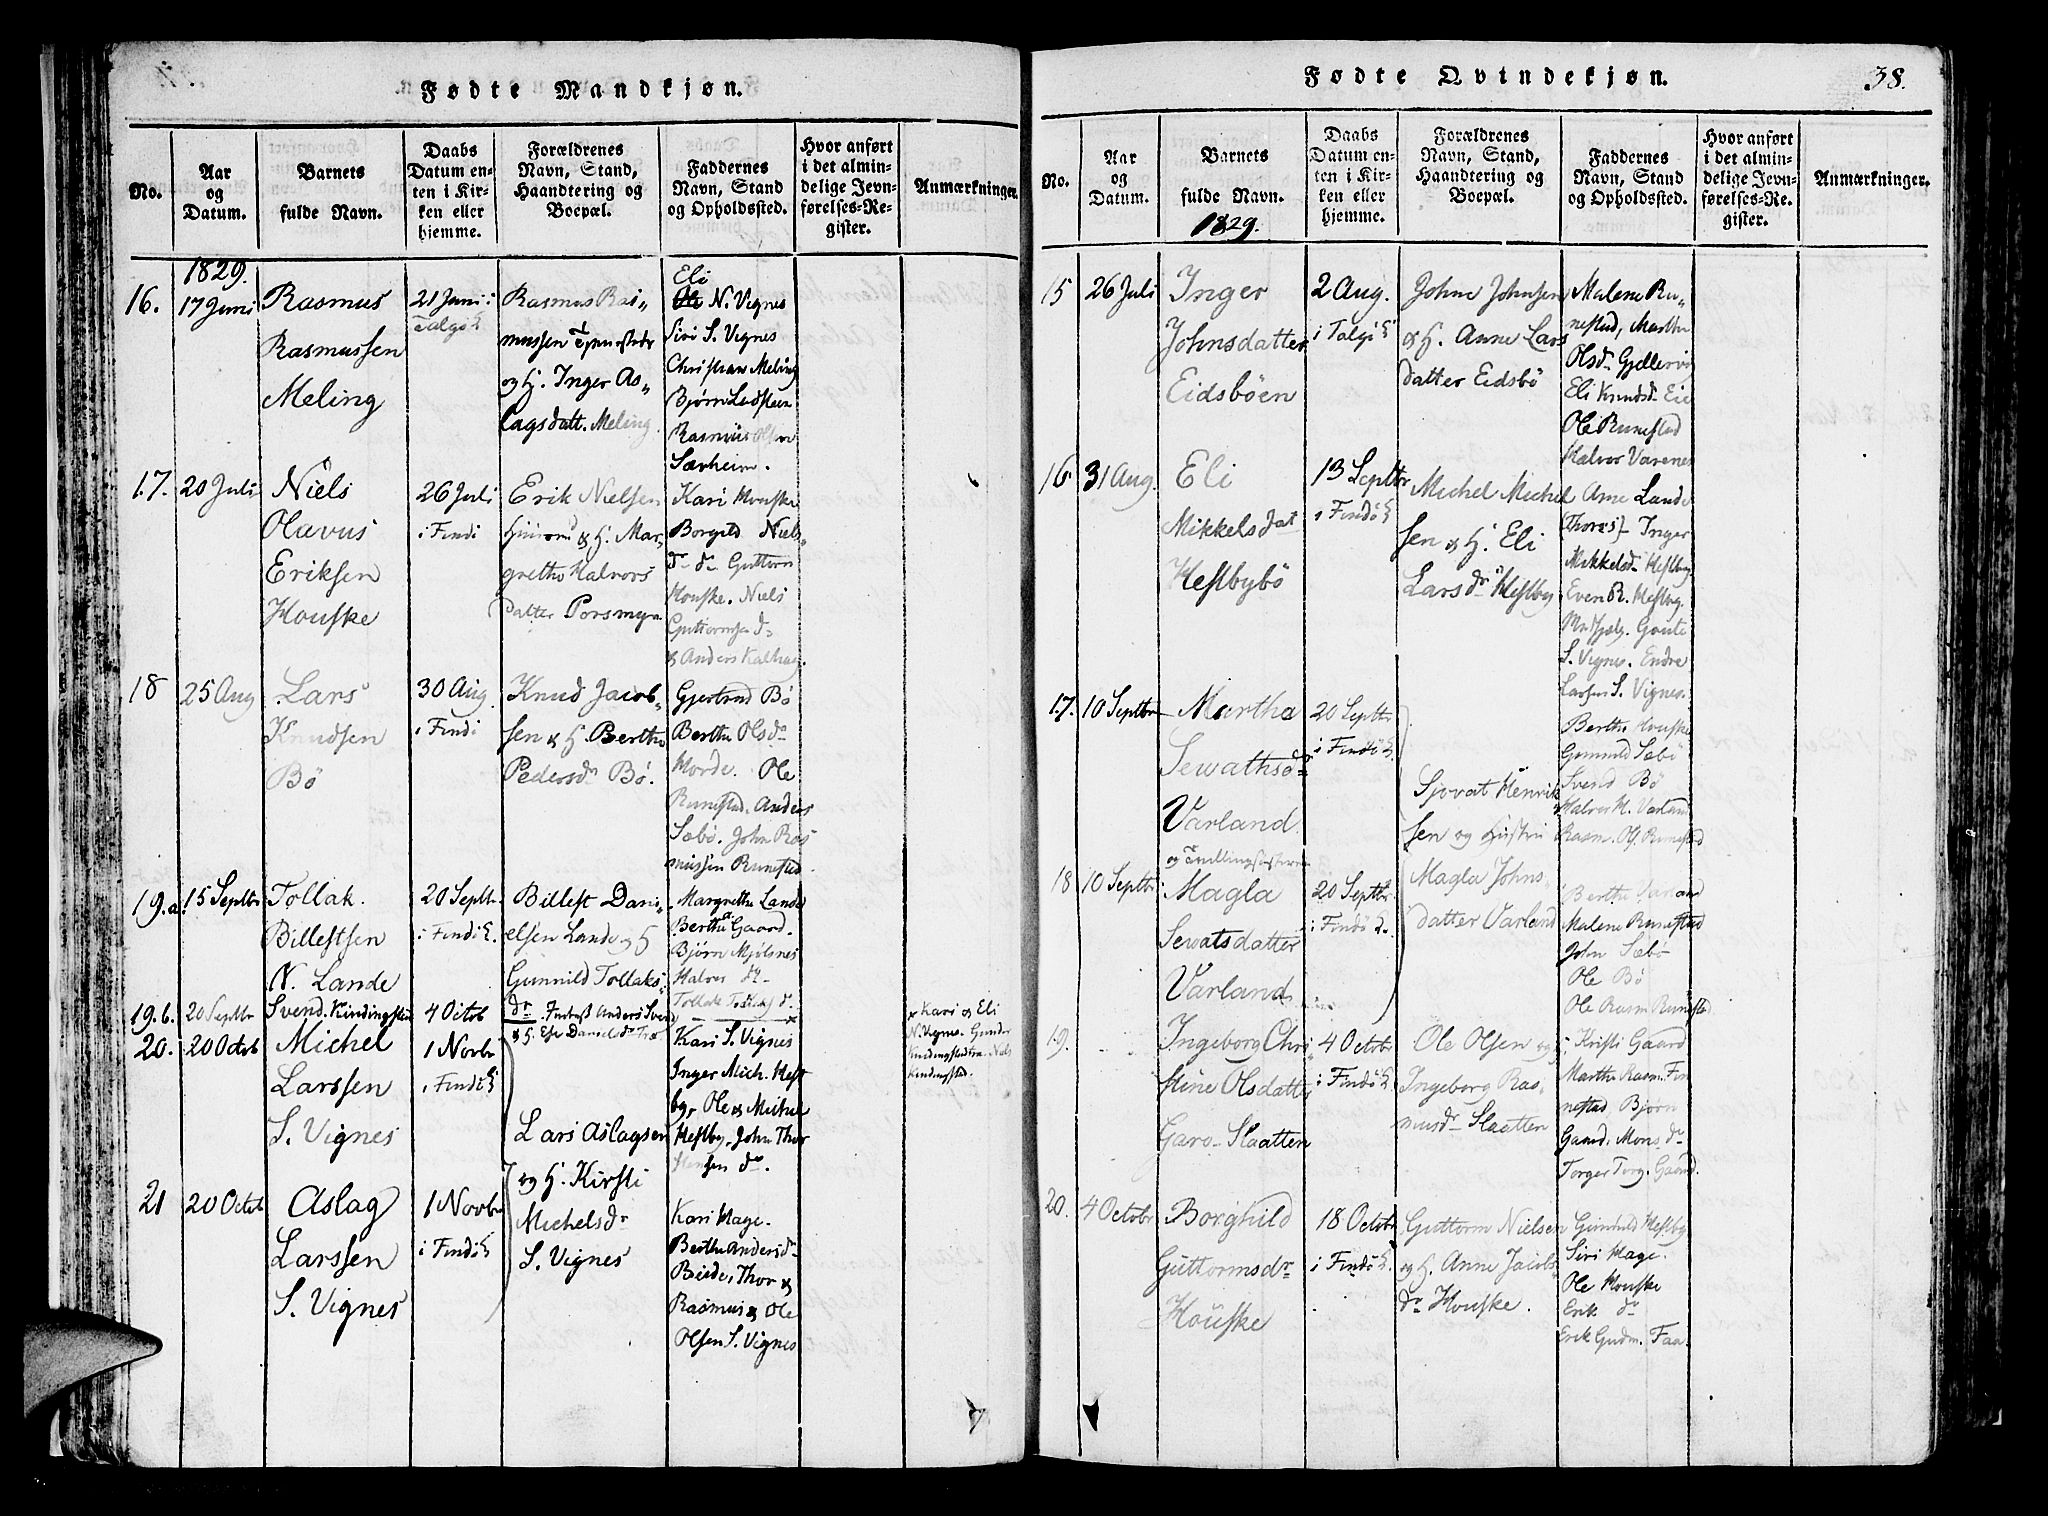 Fødte Mandkjøn.
No.
Aar
og
Datum.
Barnets
fulde Navn.
Daabs
Datum en-
ten i Kir-
ken eller
hjemme.
Forældrenes
Navn, Stand,
Haandtering og
Boepæl.
Faddernes
Navn, Stand
og Opholdssted.
Hvor anført
i det almin-
delige Jevn-
førelses-Re-
gister.
Anmærkninger.
1829.
16.
17 Juni
Rasmus
Rasmussen
Meling
21 Juni
Talgö
Rasmus Ras„
mussen
og H. Inger As„
lagsdatt. Meling.
Eli
N. Vignes
Siri S. Vignes
Christian Meling
Bjørn Ladsteen
Rasmus Olsen
Sørheim.
17.
20 Juli
Niels
Olavus
Eriksen
Houske
26 Juli
i Findö
Erik Nielsen
& H. Mar„
grethe Halvors
datter Porsmyr
Kari Houske
Borgild Niels„
dr do Guttorm
Houske. Niels
Guttormsen do
& Anders Kalhag.
18
25 Aug
Lars
Knudsen
Bö
30 Aug.
i Findö
Knud Jacob„
sen & H. Berthe
Pedersdr Bö.
Gjertrud Bö
Berthe Olsdr
Horde. Ole
Runestad. Anders
Sæbö. John Ras
mussen Runestad.
19.a.
15 Septbr
Tollak
Billestsen
N. Lande
20 Septbr
i Findö K.
Billest Dani„
elsen Lande og H
Gunnild Tollaks„
dr
Margrethe Lande
Berthe Gaard.
Bjørn Mjölsnes
Halvor do
Tollak do
19.b.
20 Septbr
Svend Kindingstad
4 Octob
Anders Svend
& H. Danielsdr
Kari & Eli
N. Vignes. Gunder
Kindingstad. Niels
Kindingstad.
20.
20 Octob
Michel
Larssen
S. Vignes
1 Novbr
i Findö K
Kari S. Vignes
Inger Mich. Hest
by, Ole & Michel
Hestby. John Thor
stensen do.
Lars Aslagsen
og H. Kirsti
Michelsdr
S. Vignes
21
20 Octob
Aslag
Larssen
S. Vignes
1 Novbr
i Findö K
Kari Hage.
Berthe Andersdr
Thor &
Rasmus & Ole
Olsen S. Vignes
Fødte Qvindekjøn.
38.
No.
Aar
og
Datum.
Barnets
fulde Navn.
1829.
Daabs
Datum en-
ten i Kir-
ken eller
hjemme.
Forældrenes
Navn, Stand,
Haandtering og
Boepæl.
Faddernes
Navn, Stand
og Opholdsted.
Hvor anført
i det almin-
delige Jevn-
førelses-Re-
gister.
Anmærkninger.
15
26 Juli
Inger
Johnsdatter
Eidsböen
2 Aug.
i Talgö K
Johne Johnsen
& H. Anne Lars
datter Eidsbö
Malene Ru„
nestad, Martha
Olsdr Gjellervig
Eli Knudsdr Eie
Ole Runestad
Halvor Varenes
16
31 Aug.
Eli
Mikkelsdat
Hestbybö
13 Septbr
i Findö K
Michel Michel
sen & H. Eli
Larsdr Hestby
Arne Lande
Inger
Mikkelsdr Hestby
Even R. Hestby.
Goute
S. Vignes. Endre
Larsen S. Vignes.
17.
10 Septbr
Martha
Sewathsdr
Varland
20 Septbr
i Findö K
Sjovat Henrik
sen og Hustru
Magla Johns„
datter Varland
Berthe Houske
Gunnild Sæbö
Svend Bö
Halvor H. Varland
Rasm. Ols. Runestad
18
10 Septbr.
og Tvillingsøsteren
Magla
Sewatsdatter
Varland
20 Septbr
i Findö K.
Berthe Varland
Malene Runestad
John Sæbö
Ole Bö
Ole Rasm Runestad
19.
Ingeborg Chri
stine Olsdatter
Garo-Slaatten
4 Octobr
i Findö K.
Ole Olsen og
Ingeborg Ras„
musdr Slaatten
Kristi Gaard
Martha Rasm. Fin
nestad, Bjørn
Gaard, Mons do
Torger Torg. Gaard.
20.
4 Octobr
Borghild
Guttormsdr
Houske
18 Octobr
i Findö K.
Guttorm Nielsen
og H. Anne Jacobs„
dr Houske.
Gunnild Hestby
Siri Hage.
Ole Houske
Erik do
Erik Gudm. Faa